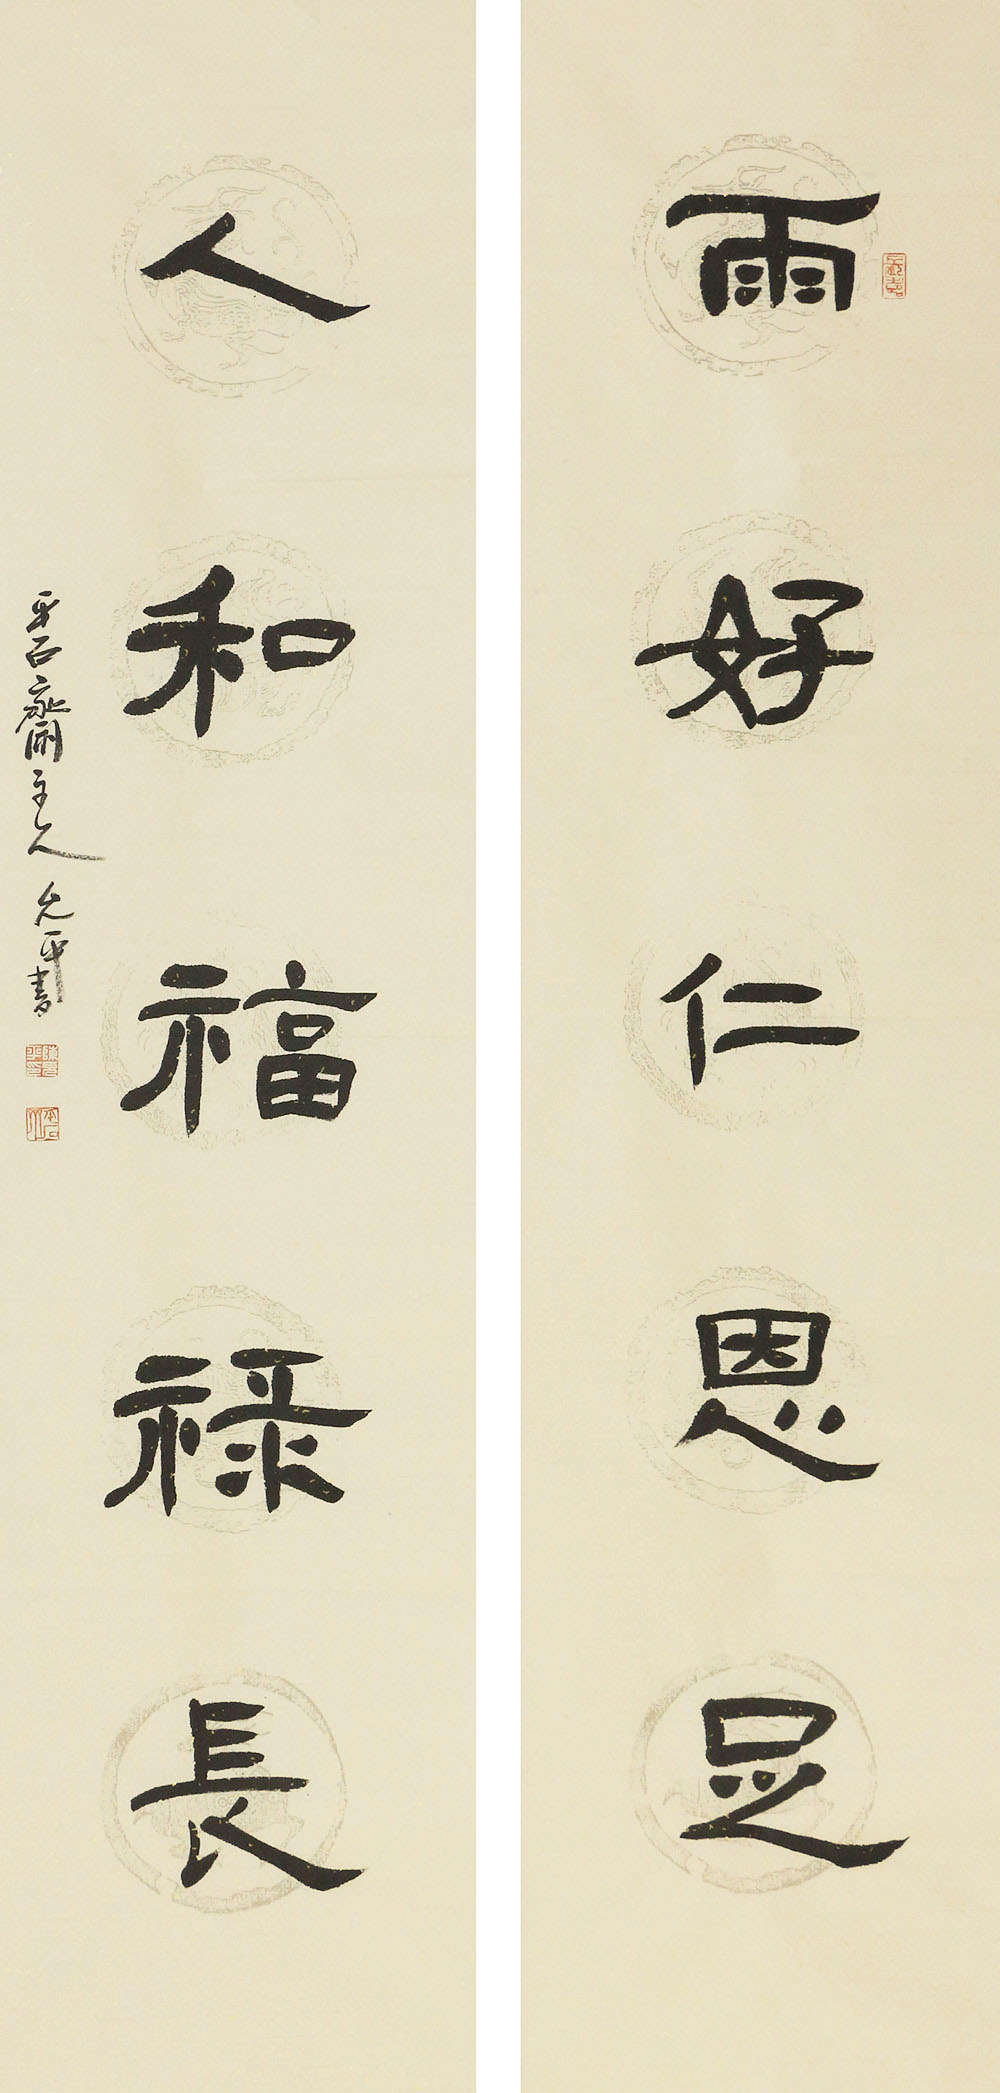 雨好仁恩足
人和福祿長
平石齋主人 允平書